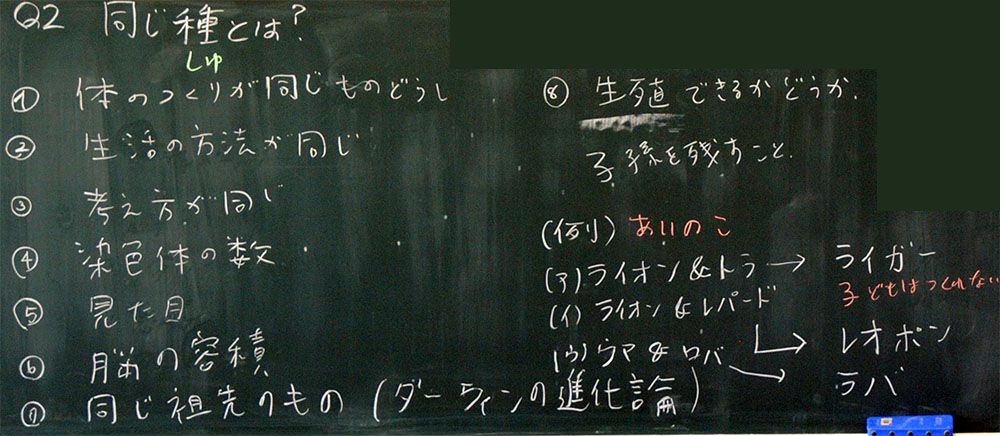 Q2 同じ種とは?
しゅ
① 体のつくりが同じものどうし
② 生活の方法が同じ
③ 考え方が同じ
④ 染色体の数
⑤ 見た目
⑥ 脳の容積
⑦ 同じ祖先のもの (ダーウィンの進化論)
⑧ 生殖できるかどうか.
子孫を残すこと.
(例) あいのこ
(ア) ライオン & トラ → ライガー
子どもはつくれない
(イ) ライオン & レパード → レオポン
(ウ) ウマ & ロバ → ラバ